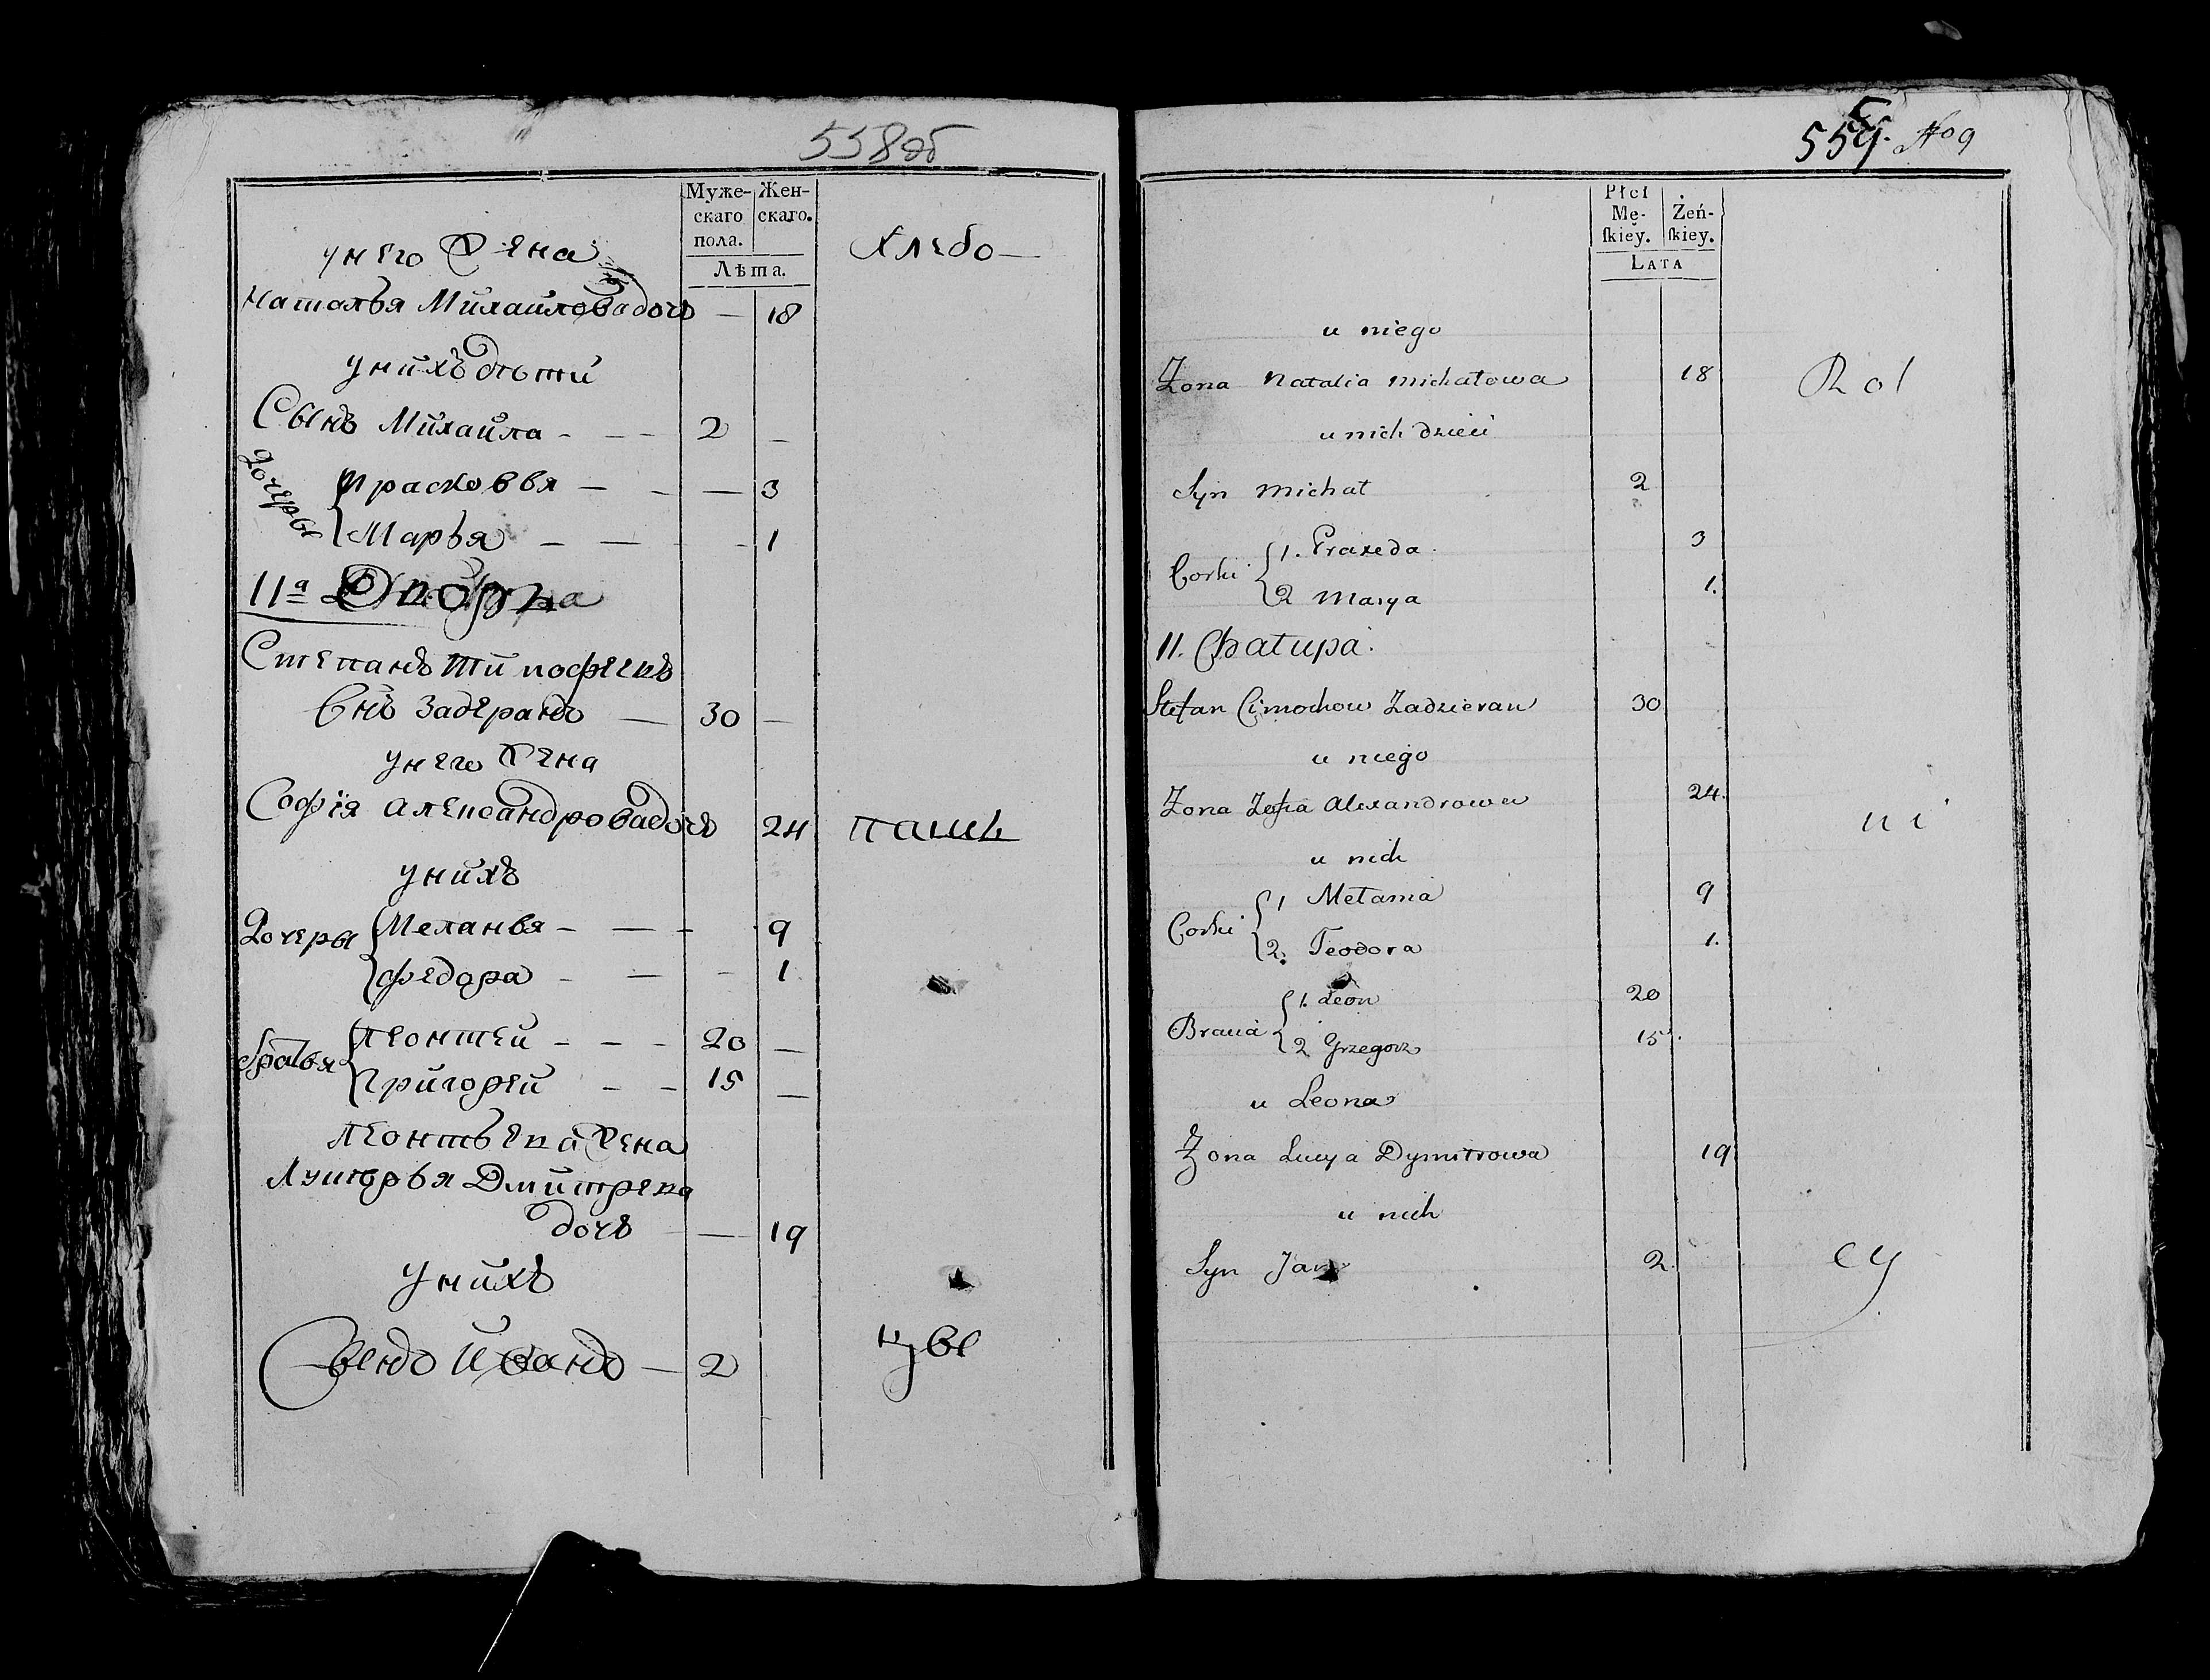 558об
Муже- Жен-
скаго скаго.
пола.
Лѣта.
у него Жена Хлебо—
Наталья Михайлова дочь — 18
у нихъ дѣти
Сынъ Михайла - — — 2 —
дочеры
Прасковья — - — 3
Марья — — - - 1
11а Двора
Степанъ Тимофеевъ
Снъ Задеранъ — 30 —
у него Жена
Софїя Александрова дочь 24 паше
у нихъ
Дочеры
Меланья - — - 9
Федора - — - 1
братья
Леонтей - - - 20 —
Григорей - - 15 —
Леонтьева Жена
Лукерья Дмитрева
дочь — 19
у нихъ
Сынъ Иванъ — 2 цы
559. No 9
Płci
Mę- Żeń-
ſkiey. ſkiey.
LATA
u niego
Żona Natalia Michałowa 18 Rol
u nich dzieci
Syn Michał 2
Corki
1. Praxeda. 3
2 Marya 1.
11. Chałupa.
Stefan Cimochow Zadzieran 30
u niego
Żona Zofia Alexandrowa 24. ni
u nich
Corki
1 Mełania 9
2. Teodora 1.
Bracia
1. Leon 20
2 Grzegorz 15.
u Leona
Żona Lucya Dymitrowa 19
u nich
Syn Jan 2. cy